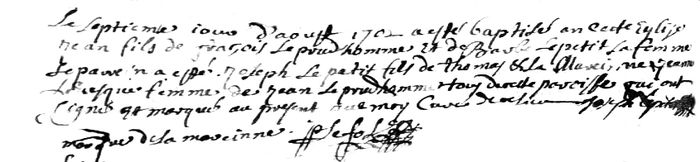 Le septieme iour d'aoust 1702 a esté baptisé an cette Eglise
Jean fils de françois Leprudhomme et de Barbe Lepetit sa femme
le parein a esté Joseph Le petit fils de thomas & la Mareine Jeanne
Levesque femme de Jean Le prudhomme tous de cette paroisse qui ont
signé et marqué au present avec moy Curé de ce lieu Joseph lepetit
marque de la mareinne